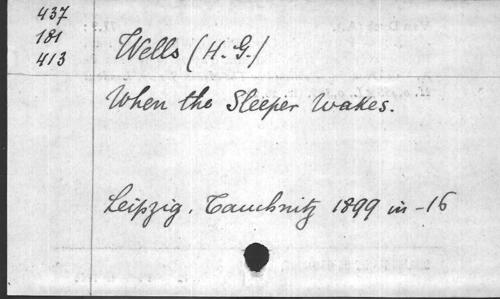 437
181
413
Wells (H. G.)
When the Sleeper Wakes.
Leipzig. Tauchnitz 1899 in-16